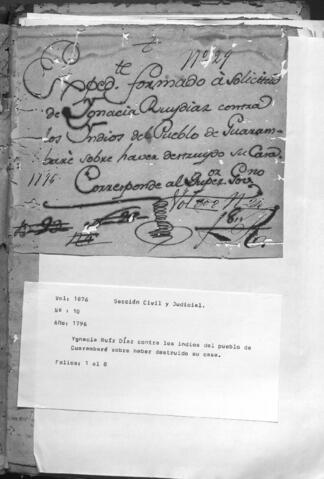 Nº 29
Expedte formado à solicitud
de Ygnacia Ruydiaz contra
los Indios del Pueblo de Guaram-
baré sobre haver destruydo su Casa.
1796
Corresponde al Superor Govno
Vol: 1876 Sección Civil y Judicial.
Nº : 10
Año: 1796
Ygnacia Ruíz Díaz contra los indios del pueblo de
Guarambaré sobre haber destruido su casa.
Folios: 1 al 8